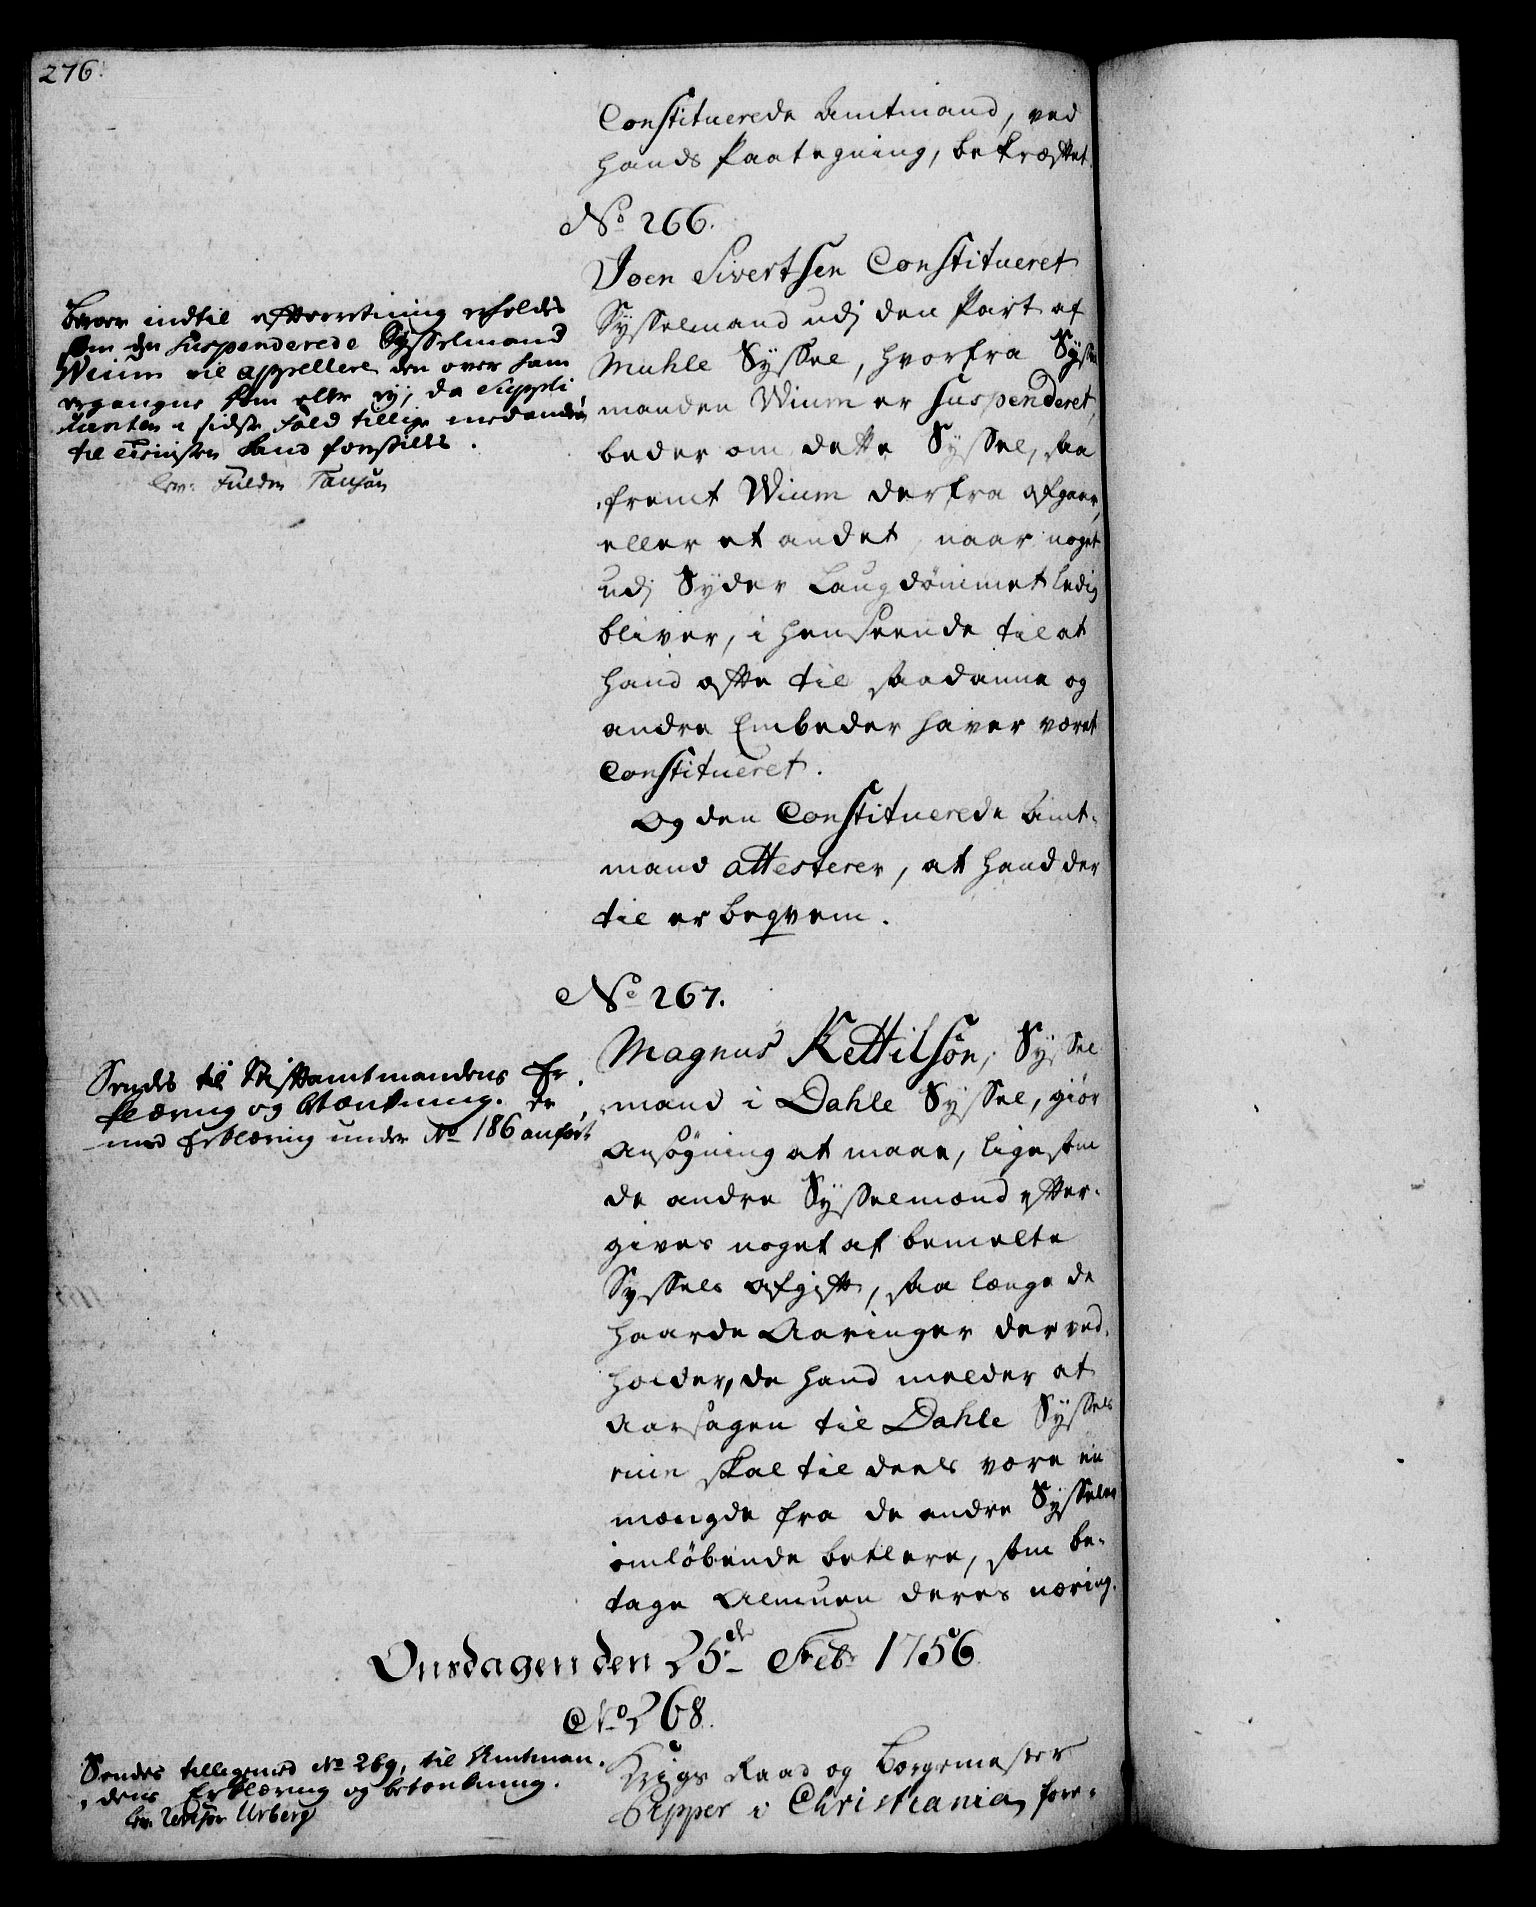 276.
Constituerede Amtmand, ved
hands Paategning, bekræftet.
No 266.
Joen Sivertsen Constitueret
Sysselmand udj den Part af
Muhle Syssel, hvorfra Syssel
manden Wium er suspenderet,
beder om dette Syssel, saa
fremt Wium derfra afgaar,
eller et andet, naar noget
udj Syder Laugdömmet ledig
bliver, i henseende til at
hand ofte til saadanne og
andre Embeder haver været
Constitueret.
Og den Constituerede Amt-
mand attesterer, at hand der
til er beqvem.
Beroer indtil efterretning erholdes
om den suspenderede Sysselmand
Wium vil appellere den over ham
ergangne Dom eller ej, da Suppli
canten i sidste fald tillige med andre
til Tienisten kand forestilles.
No 267.
Magnus Kettilsön, Syssel
mand i Dahle Syssel, giör
Ansögning at maae, ligesom
de andre Sysselmænd efter-
gives noget af bemelte
Syssels afgift, saa længe de
haarde Aaringer der ved-
holder, da hand melder at
Aarsagen til Dahle Syssels
ruin skal til deels være en
mængde fra de andre Sysseler
omlöbende betlere, som be-
tage Almuen deres næring.
Sendes til Stiftamtmandens Er-
klæring og betænkning. Er
med Erklæring under No 186 anfört
Onsdagen den 25de Febr 1756.
No 268.
Krigs Raad og Borgemester
i Christiania, fore-
Sendes tilligemed No 269, til Amtman-
dens Erklæring og betænkning.
Urberg